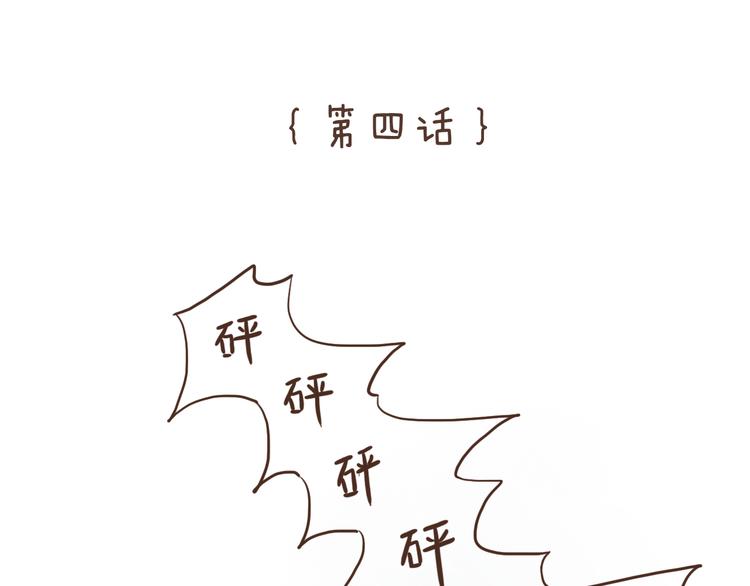 {第四话}
砰
砰
砰
砰